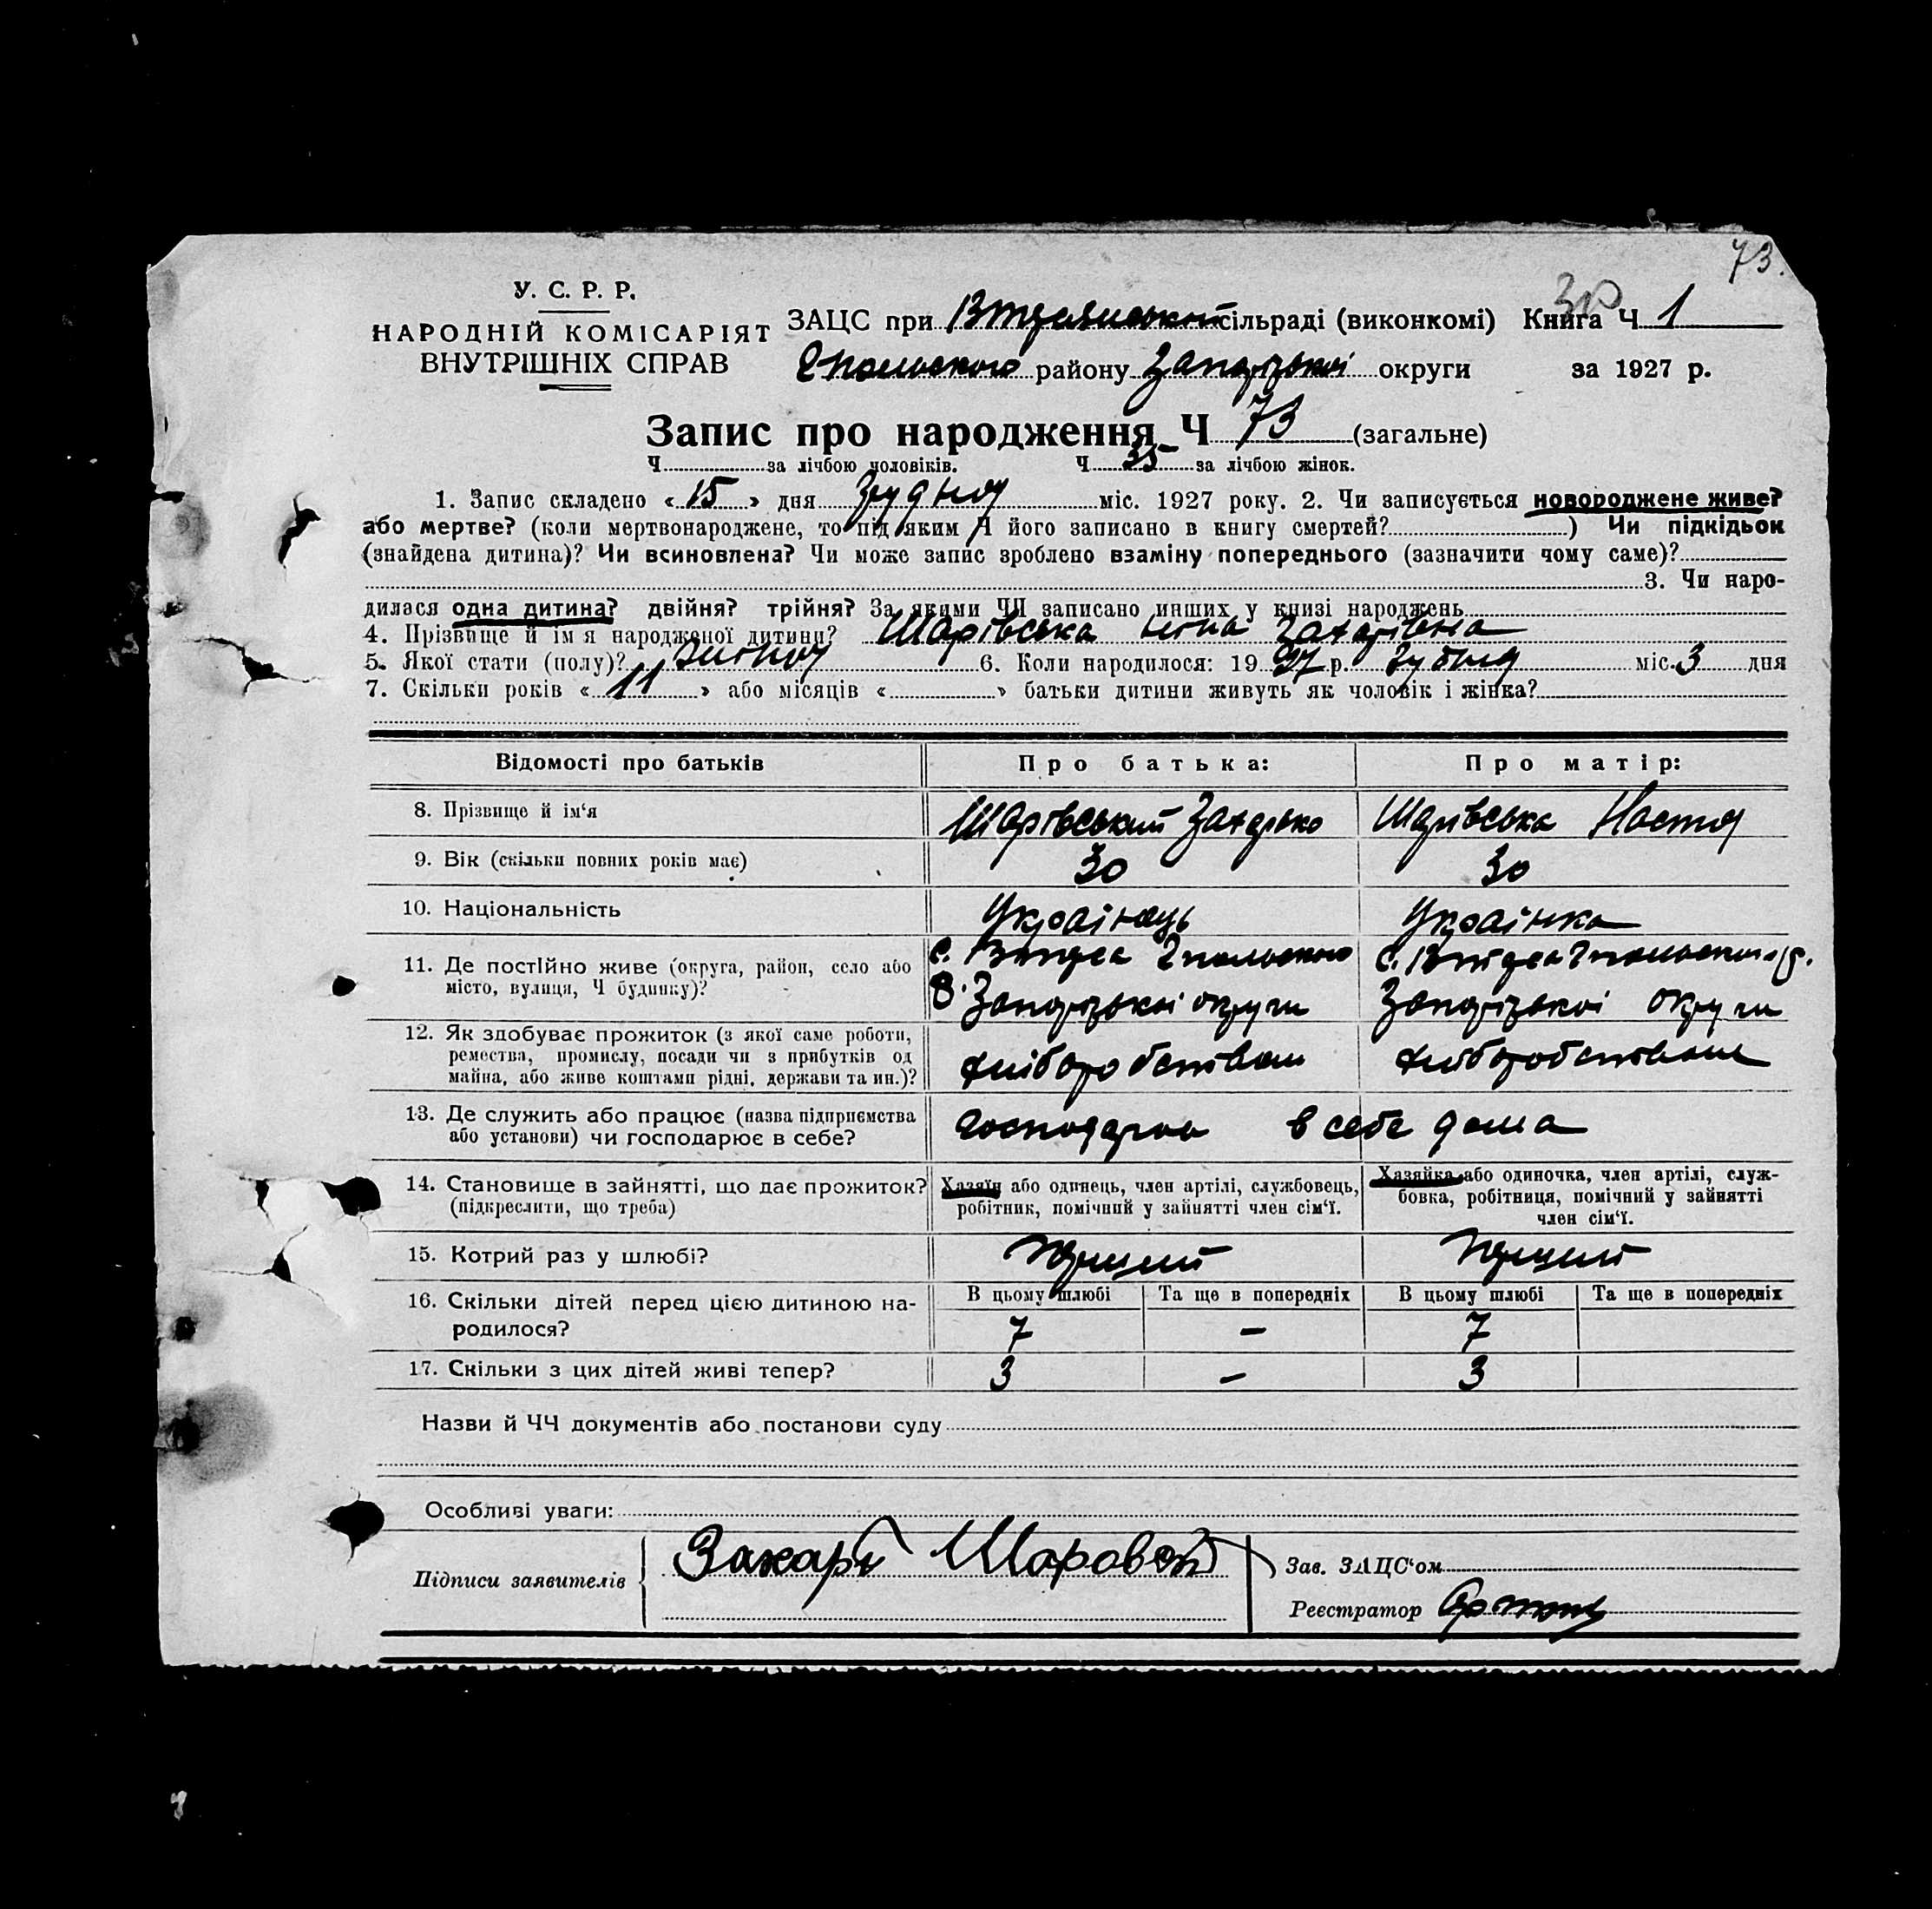 73.
У. С. Р. Р.
НАРОДНІЙ КОМІСАРІЯТ
ВНУТРІШНІХ СПРАВ
ЗАЦС при сільраді (виконкомі) Книга Ч 1
району Запорізької округи за 1927 р.
Запис про народження Ч 73 (загальне)
Ч за лічбою чоловіків. Ч 35 за лічбою жінок.
1. Запис складено « 15 » дня Грудня міс. 1927 року. 2. Чи записується новороджене живе?
або мертве? (коли мертвонароджене, то під яким Ч його записано в книгу смертей? ) Чи підкідьок
(знайдена дитина)? Чи всиновлена? Чи може запис зроблено взаміну попереднього (зазначити чому саме)?
3. Чи наро-
дилася одна дитина? двійня? трійня? За якими ЧЧ записано инших у книзі народжень
4. Прізвище й ім'я народженої дитини? Шарівська Захарівна
5. Якої стати (полу)? 6. Коли народилося: 19 27 р. міс. 3 дня
7. Скільки років « 11 » або місяців « » батьки дитини живуть як чоловік і жінка?
Відомості про батьків Про батька: Про матір:
8. Прізвище й ім'я Шарівський Захарько Шарівська Настя
9. Вік (скільки повних років має) 30 30
10. Національність Українець Українка
11. Де постійно живе (округа, район, село або
місто, вулиця, Ч будинку)?
с. с.
Запорізької округи Запорізької округи
12. Як здобуває прожиток (з якої саме роботи,
ремества, промислу, посади чи з прибутків од
майна, або живе коштами рідні, держави та ин.)?
хліборобством хліборобством
13. Де служить або працює (назва підприємства
або установи) чи господарює в себе?
в себе дома
14. Становище в зайнятті, що дає прожиток?
(підкреслити, що треба)
Хазяїн або одинець, член артілі, службовець,
робітник, помічний у зайнятті член сім'ї.
Хазяйка або одиночка, член артілі, служ-
бовка, робітниця, помічний у зайнятті
член сім'ї.
15. Котрий раз у шлюбі? перший перший
16. Скільки дітей перед цією дитиною на-
родилося?
В цьому шлюбі Та ще в попередніх В цьому шлюбі Та ще в попередніх
7 – 7
17. Скільки з цих дітей живі тепер? 3 – 3
Назви й ЧЧ документів або постанови суду
Особливі уваги:
Підписи заявителів
Зав. ЗАЦС'ом
Реєстратор